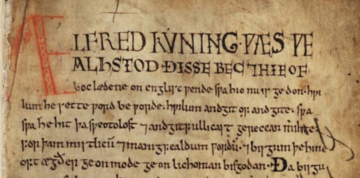 ÆLFRED KUNING ǷÆS ǷE
ALHSTOD ÐISSE BEC 7 HIE OF
boc ledene on englisc ƿende sƿa hio nu is ge don. hƿi
lum he sette ƿord be ƿorde. hƿilum andgit of andgite. sƿa
sƿa he hit þa sƿeotolost 7 andgitfullicast gereccan mihte
for þam mistlicum 7 manigfealdum ƿoruld bisgum þe hine
oft ægðer ge on mode ge on lichoman bisgodan. Ða bisgu